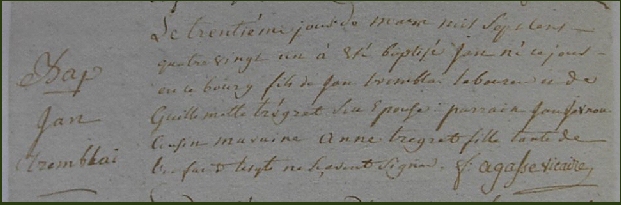 Bap
Jan
tremblai
Le trentiéme jour de mars mil sept cens
quatre vingt un à été baptisé Jan né ce jour
en ce bourg fils de Jan tremblai laboureur et de
Guillemette trégret son Epouse : parrain Jan
cousin maraine Anne tregret fille tante de
ne scavent signer. agasse vicaire